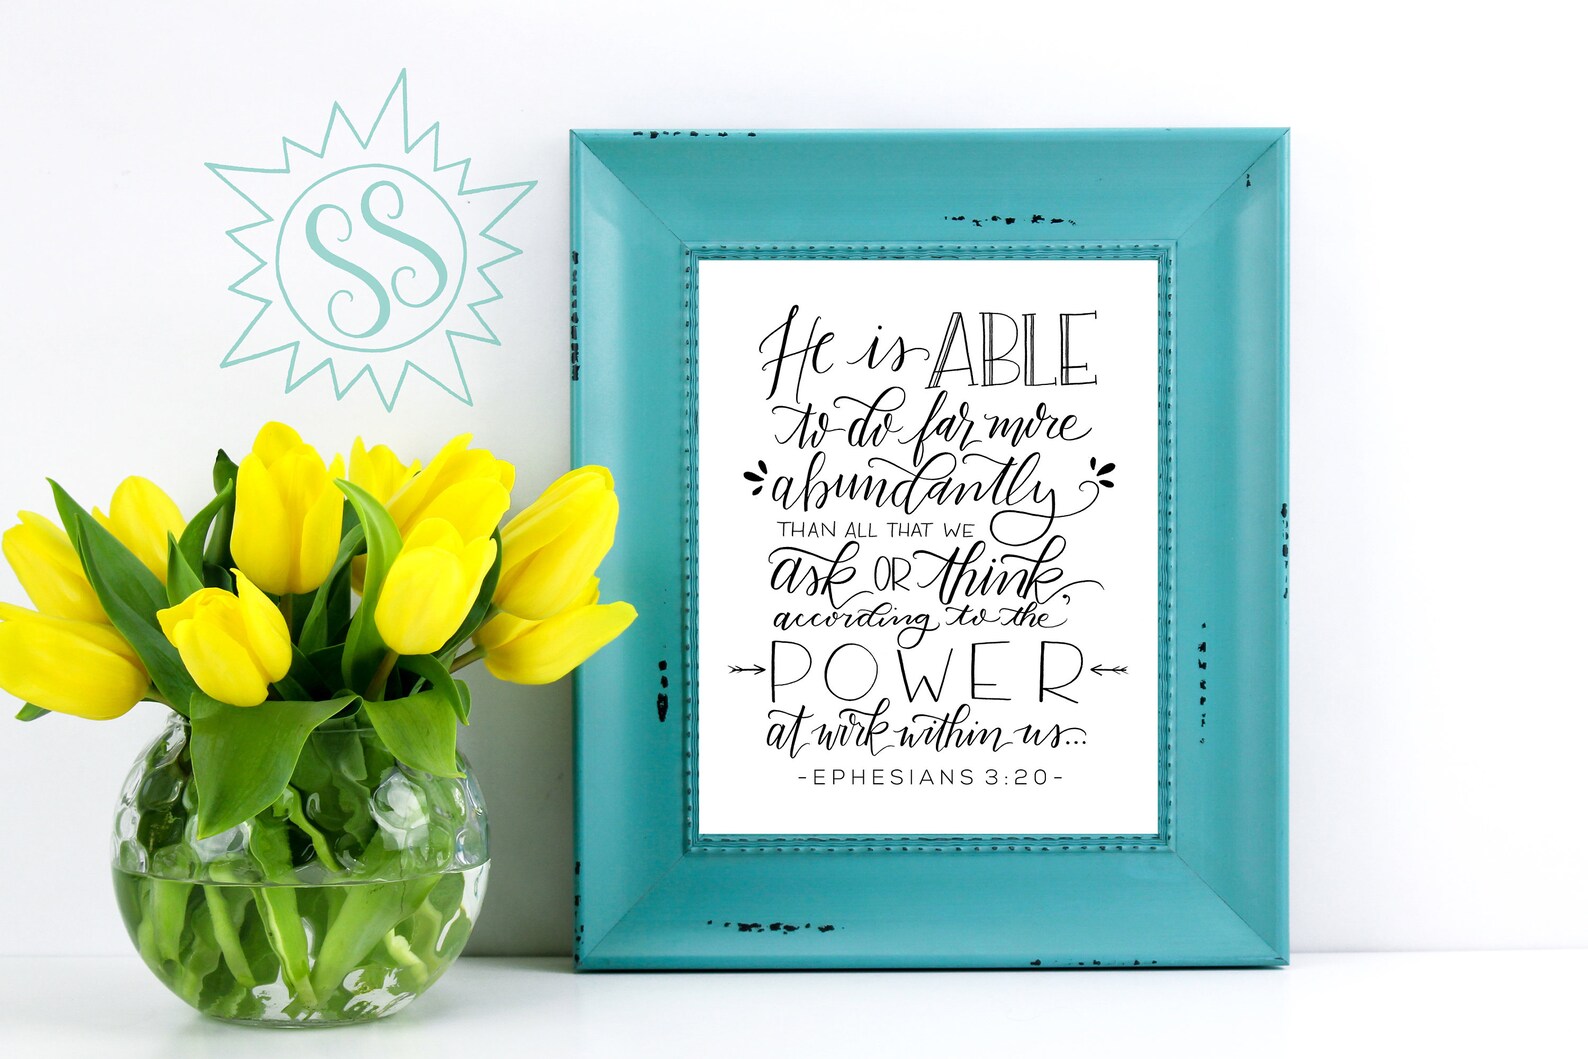 SS
He is ABLE
to do far more
abundantly
THAN ALL THAT WE
ask OR think,
according to the
POWER
at work within us...
-EPHESIANS 3:20-